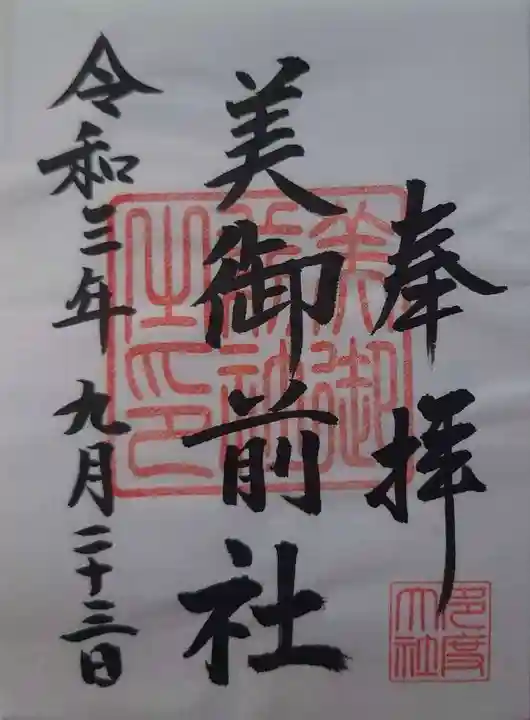 奉拝
美御前社
令和三年九月二十三日
美御前社之印
多度大社